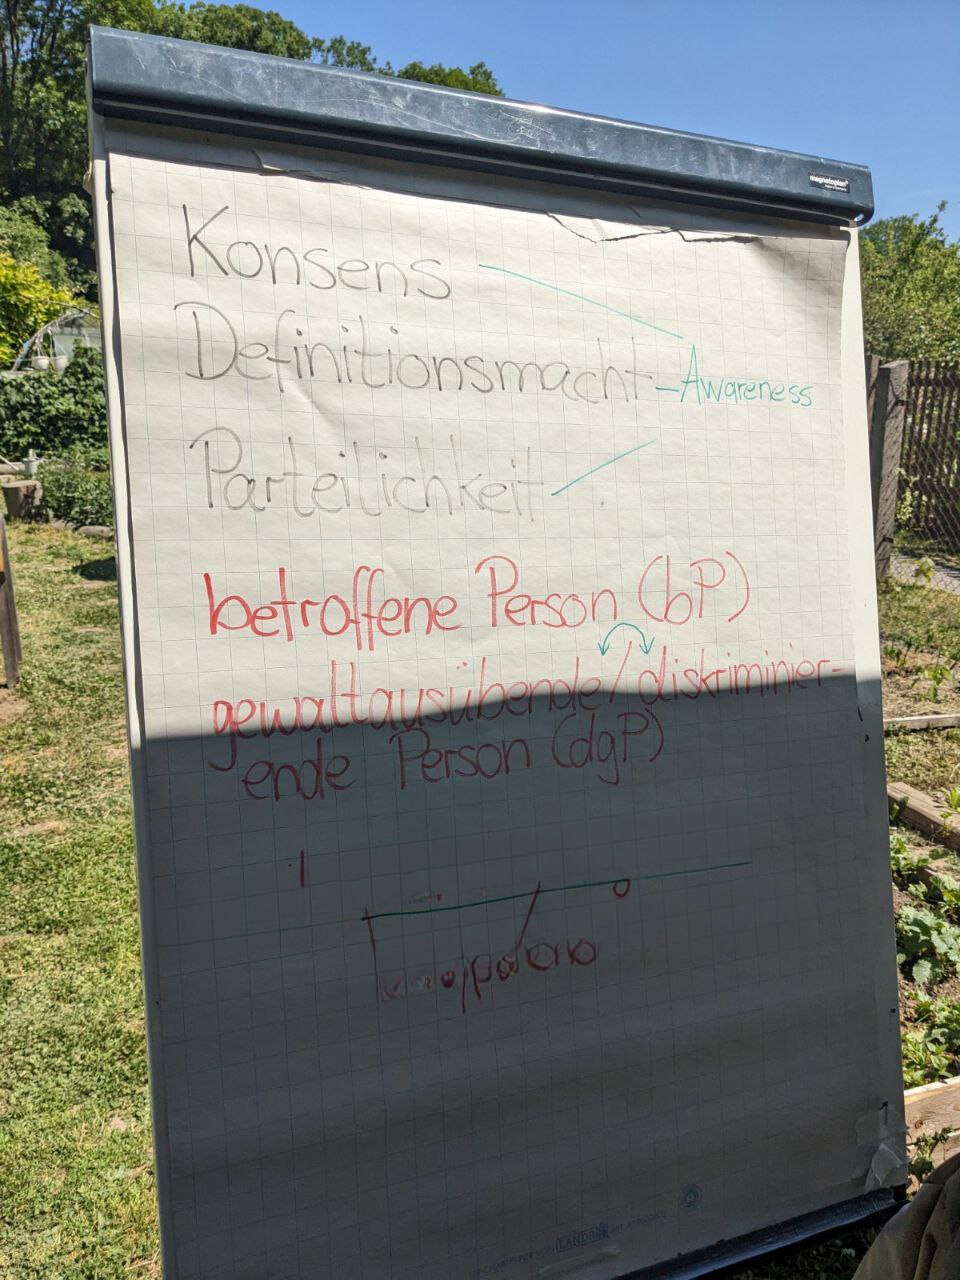 magnetoplan
Konsens
Definitionsmacht - Awareness
Parteilichkeit
betroffene Person (bP)
gewaltausübende/diskriminier-
ende Person (dgP)
LANDRÉ